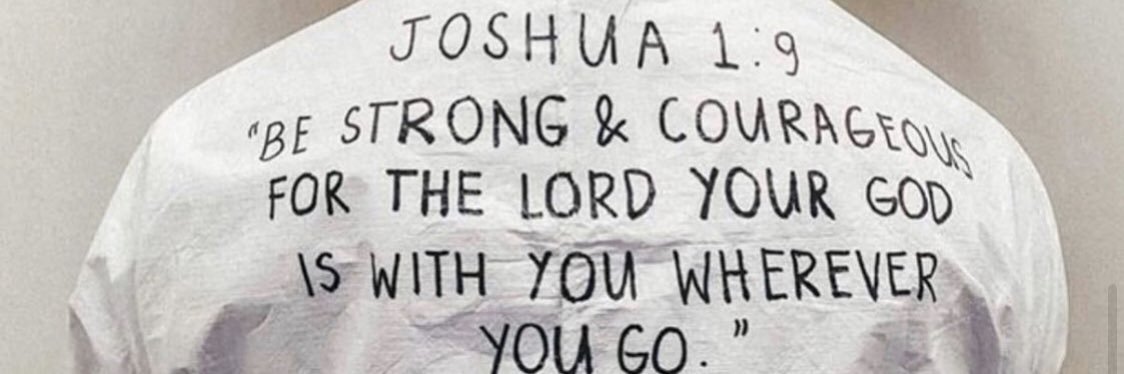 JOSHUA 1:9
"BE STRONG & COURAGEOUS
FOR THE LORD YOUR GOD
IS WITH YOU WHEREVER
YOU GO."